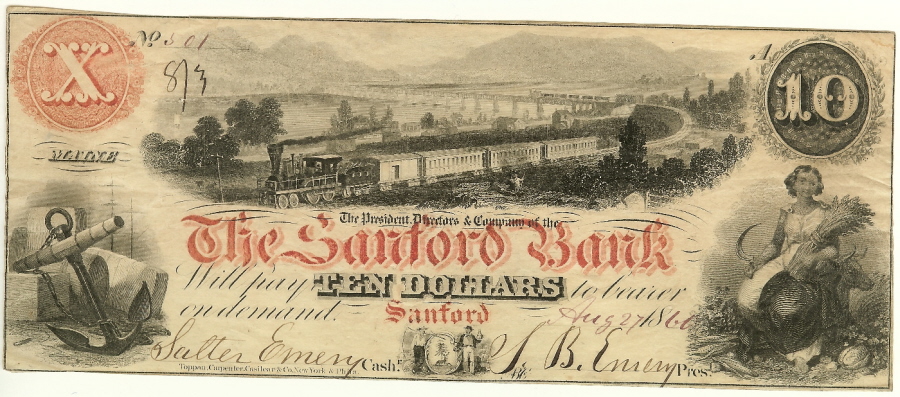 X
No 501
A
10
8/3
MAINE
The President, Directors & Company of the
The Sanford Bank
Will pay TEN DOLLARS to bearer
on demand. Sanford Aug 27 1860
Salter Emery Cash.r S. B. Emery Pres.t
Toppan, Carpenter, Casilear & Co. New York & Phila.